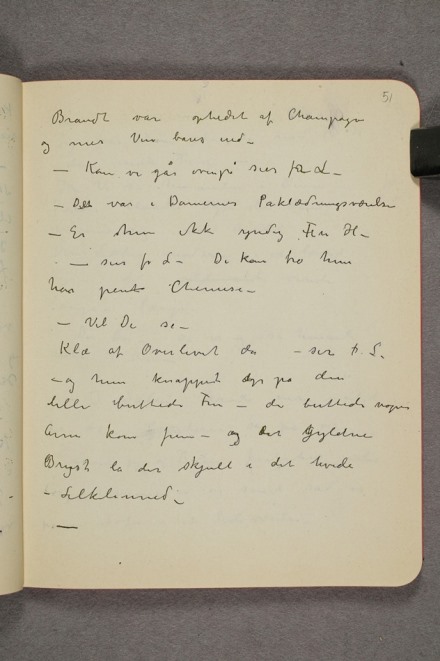 51
Brandt var ophedet af Champagne
og mer Vin bares ind –
– Kom vi går ovenpå sier fru L –
– Det var i Damernes Påklædningsværelse
– Er hun ikke yndig Fru H –
– sier fr L – De kan tro hun
har pent Chemise –
– Vil De se –
Klæ af Overlivet da – sier F. L.
– og hun knappet op på den
lille buttede Fru – de buttede
Arme kom frem – og det Gyldne
Bryst la der skjult i det hvide
– Silkelinned –